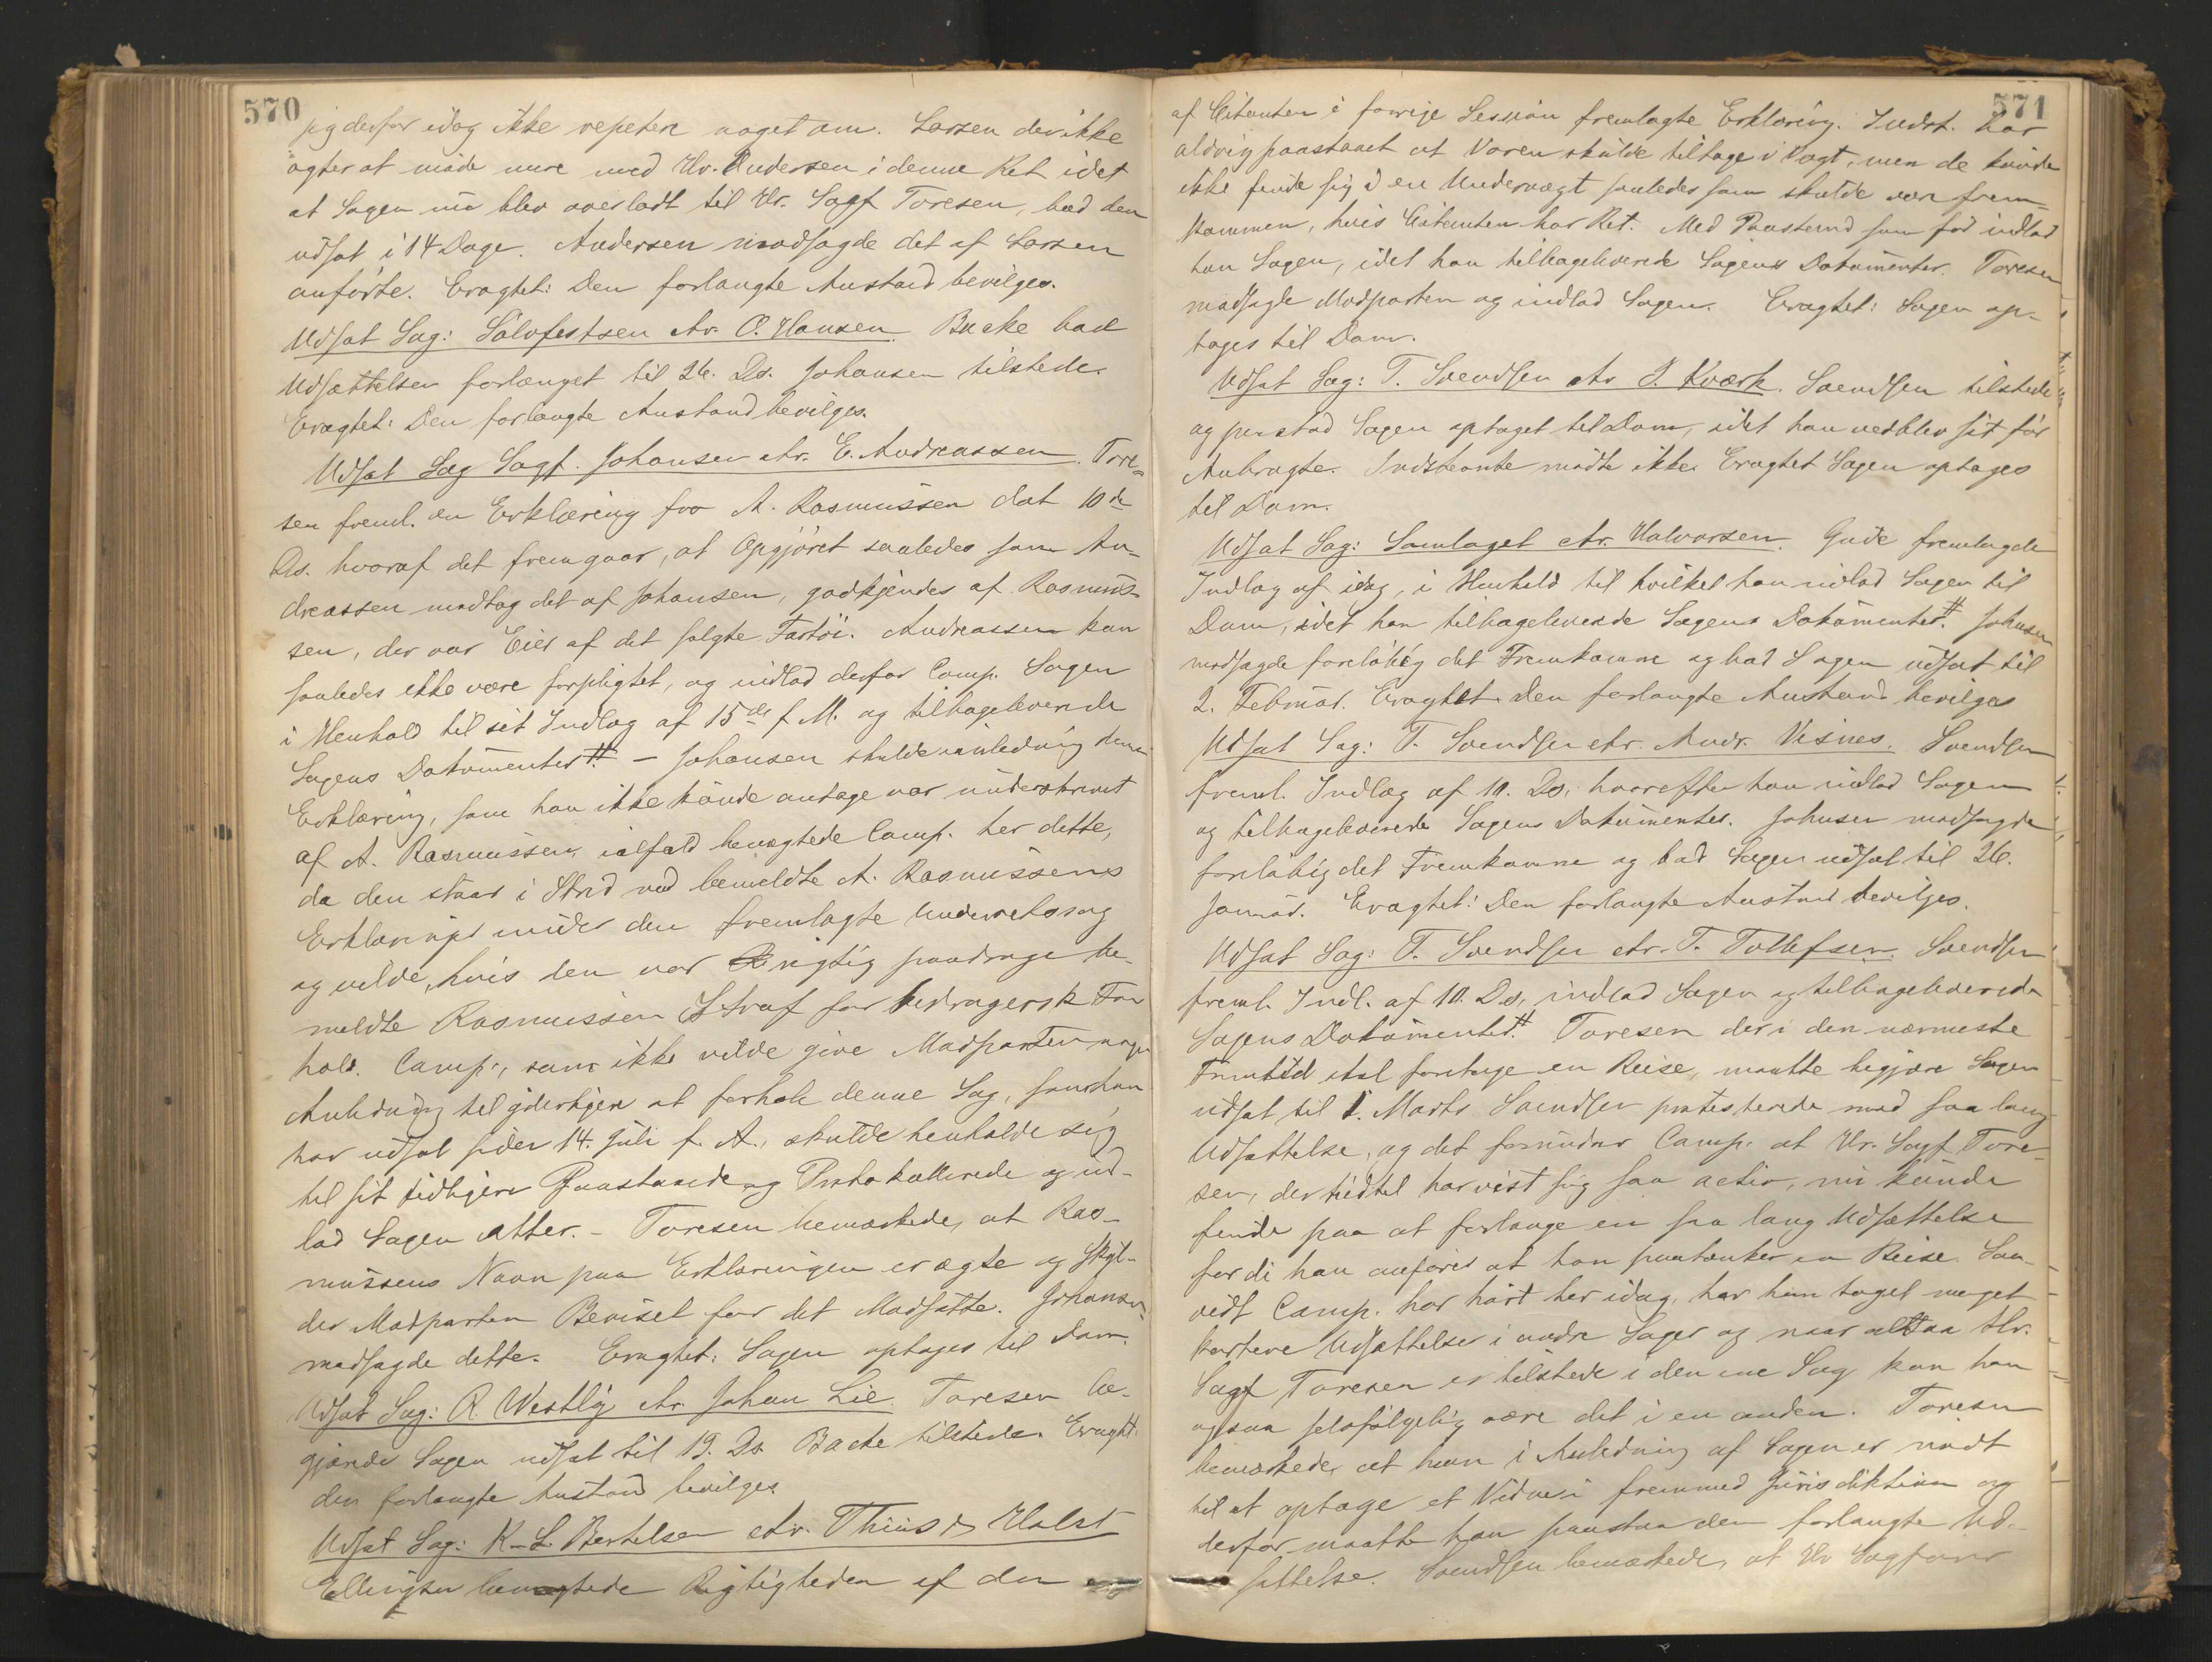 570
jeg derfor idag ikke repetere noget om. Larsen der ikke
agter at møde mere med Hr. Andersen i denne Ret idet
at Sagen nu blev overladt til Hr. Sagf Toresen, bad den
udsat i 14 Dage. Andersen modsagde det af Larsen
anførte. Eragtet: Den forlangte Anstand bevilges.
Udsat Sag: Sølvfestsen ctr. O. Hansen. Backe bad
Udsættelsen forlænget til 26. Ds. Johansen tilstede.
Eragtet: Den forlangte Anstand bevilges.
Udsat Sag Sagf. Johansen ctr. E. Andreassen. Tore-
sen freml. en Erklæring fra A. Rasmussen dat 10de
Ds. hvoraf det fremgaar, at Opgjøret saaledes som An-
dreassen modtog det af Johansen, godkjendes af Rasmus-
sen, der var Eier af det solgte Fartøi. Andreassen kan
saaledes ikke være forpligtet, og indlod derfor Comp. Sagen
i Henhold til sit Indlæg af 15de f. M. og tilbageleverede
Sagens Dokumenter #. — Johansen skulde i anledning denne
Erklæring, som han ikke kunde antage var underskrevet
af A. Rasmussen, ialfald benægtede Comp. her dette,
da den staar i Strid med bemeldte A. Rasmussens
Erklæring under den fremlagte Underretssag
og vilde, hvis den var rigtig paadrage be-
meldte Rasmussen Straf for bedragersk For
hold. Comp., som ikke vilde give Modparten nogen
Anledning til yderligere at forhale denne Sag, som han
har udsat siden 14. Juli f. A., skulde henholde sig
til sit tidligere Paastaaede og Protokollerede og ind-
lod Sagen atter. – Toresen bemærkede, at Ras-
mussens Navn paa Erklæringen er ægte og skyl-
der Modparten Beviset for det Modsatte. Johansen
modsagde dette. Eragtet: Sagen optages til Dom.
Udsat Sag: R. Westlig ctr. Johan Lie. Toresen be-
gjærede Sagen udsat til 19. Ds. Backe tilstede. Eragtet:
den forlangte Anstand bevilges.
Udsat Sag: K. L. Bertelsen ctr. Thiis & Holst
Ellingsen benægtede Rigtigheden af den
571
af Citanten i forrige Session fremlagte Erklæring. Indst. har
aldrig paastaaet at Varen skulde tiltage i Vægt, men de kunde
ikke finde sig i en Undervægt saaledes som skulde være frem-
kommen, hvis Citanten har Ret. Med Paastand som før indlod
han Sagen, idet han tilbageleverede Sagens Dokumenter. Toresen
modsagde Modparten og indlod Sagen. Eragtet: Sagen op-
tages til Dom.
Udsat Sag: T. Svendsen ctr J. Kværk. Svendsen tilstede
og paastod Sagen optaget til Dom, idet han vedblev sit før
Anbragte. Indstevnte mødte ikke. Eragtet Sagen optages
til Dom.
Udsat Sag: Samlaget ctr. Halvorsen. Gude fremlagde
Indlæg af idag, i Henhold til hvilket han indlod Sagen til
Dom, idet han tilbageleverede Sagens Dokumenter #. Johnsen
modsagde foreløbig det Fremkomne og bad Sagen udsat til
2. Februar. Eragtet Den forlangte Anstand bevilges
Udsat Sag: T. Svendsen ctr. Andr. Visnes. Svendsen
freml. Indlæg af 10. Ds. hvorefter han indlod Sagen
og tilbageleverede Sagens Dokumenter. Johnsen modsagde
foreløbig det Fremkomne og bad Sagen udsat til 26.
Januar. Eragtet: Den forlangte Anstand bevilges.
Udsat Sag: T. Svendsen ctr. T. Tollefsen. Svendsen
freml. Indl. af 10. Ds., indlod Sagen og tilbageleverede
Sagens Dokumenter #. Toresen der i den nærmeste
Fremtid skal foretage en Reise, maatte begjære Sagen
udsat til 1. Marts. Svendsen protesterede mod saa lang
Udsættelse, og det forundrer Comp. at Hr. Sagf Tore-
sen, der hidtil har vist sig saa activ, nu kunde
finde paa at forlange en saa lang Udsættelse
fordi han anfører at han paatænker en Reise. Saa-
vidt Comp. har hørt her idag, har han taget meget
kortere Udsættelser i andre Sager og naar altsaa Hr.
Sagf Toresen er tilstede i den ene Sag kan han
ogsaa selvfølgelig være det i en anden. Toresen
bemærkede, at han i Anledning af Sagen er nødt
til at optage et Vidne i fremmed Jurisdiktion og
derfor maatte han paastaa den forlangte Ud-
sættelse. Svendsen bemærkede, at Hr Sagfører